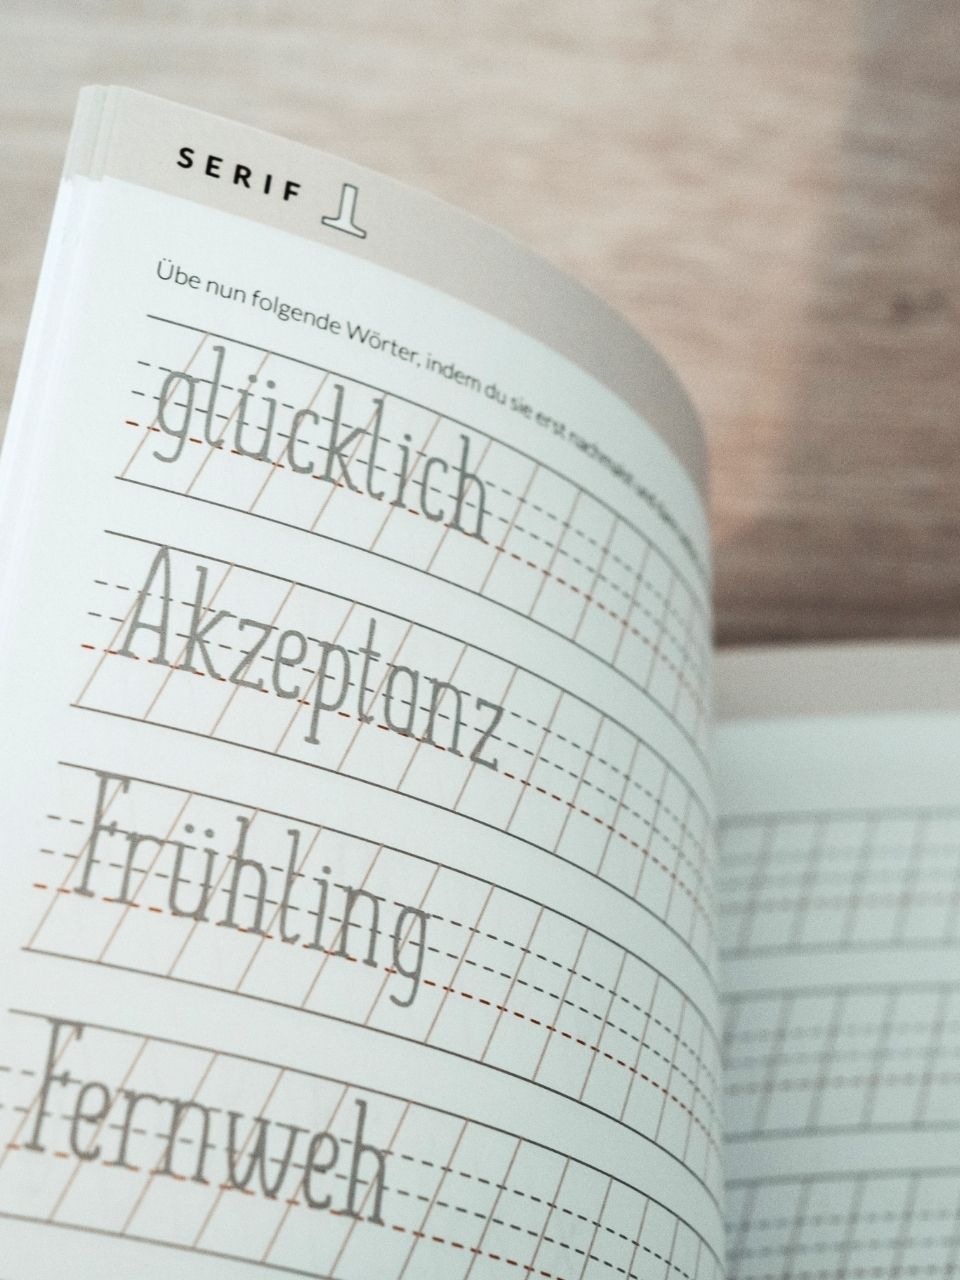 SERIF
Übe nun folgende Wörter, indem du sie erst nachmalst und
glücklich
Akzeptanz
Frühling
Fernweh